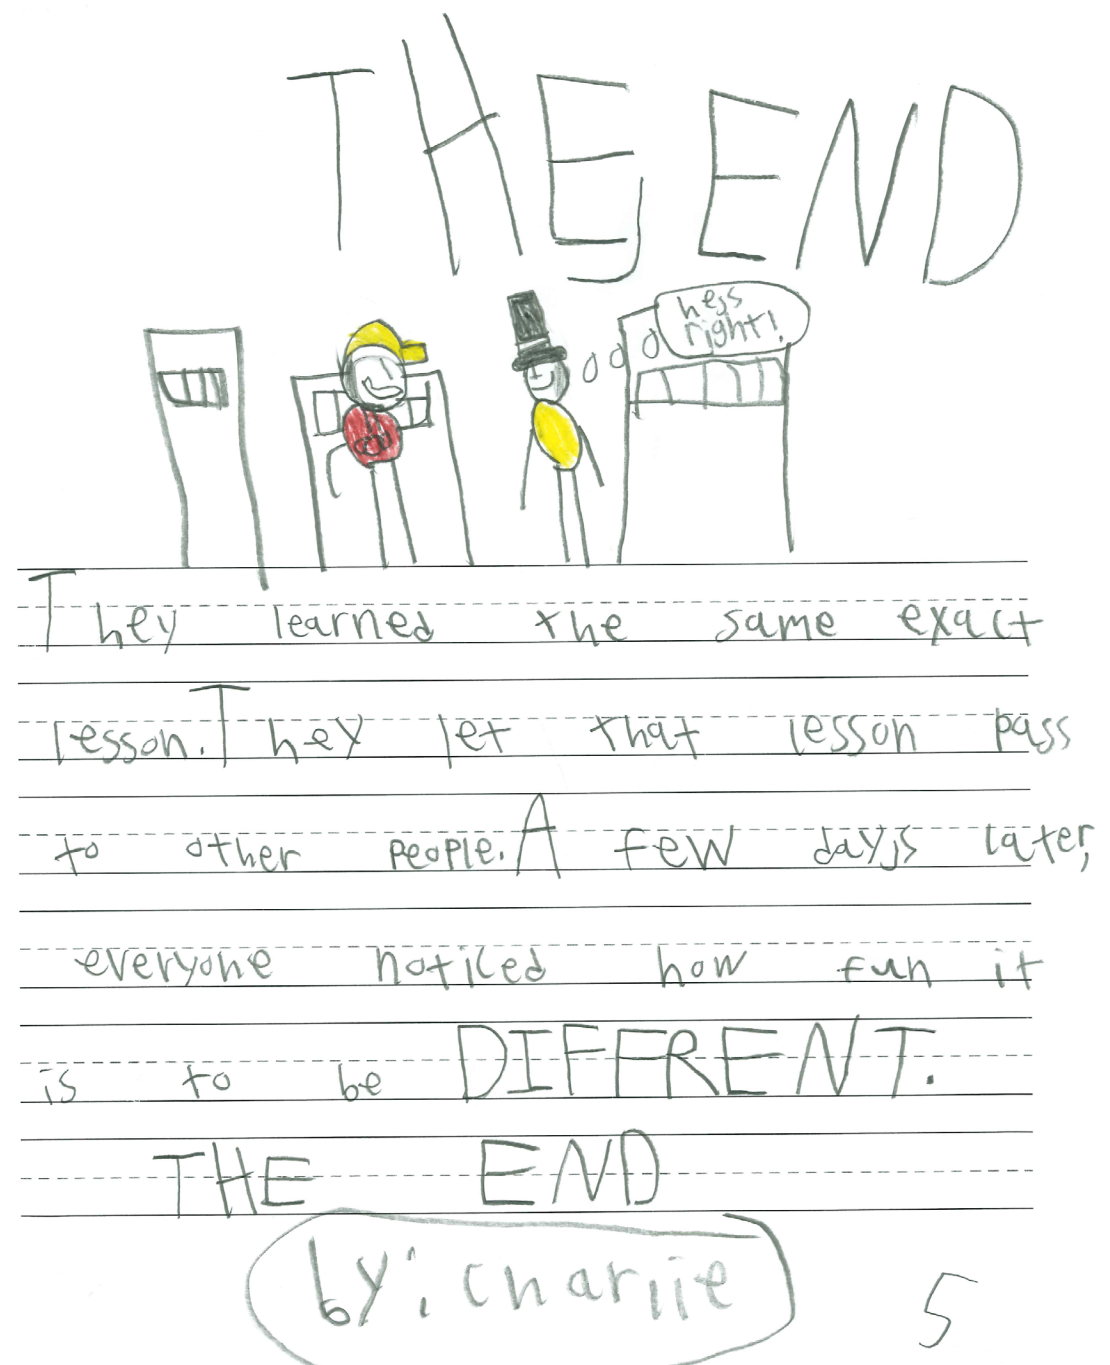 THE END
hejs
right!
They learned the same exact
lesson. They let that lesson pass
to other people. A few dayjs later,
everyone noticed how fun it
is to be DIFFRENT.
THE END
by: charlie
5